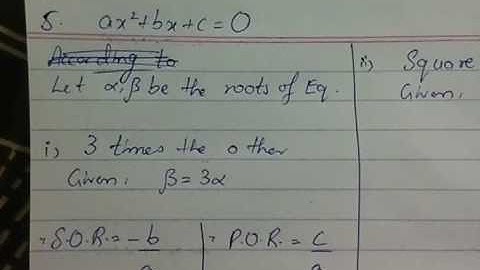 5. ax²+bx+c=0
Let α,β be the roots of Eq.
i) 3 times the other
Given: β=3α
∴ S.O.R.=-b/a
∴ P.O.R.=c/a
ii) Square
Given: